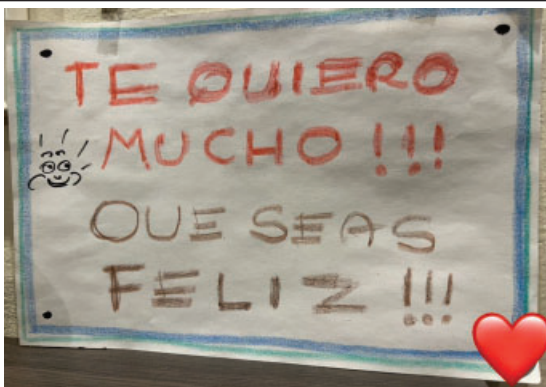 TE QUIERO
MUCHO !!!
QUE SEAS
FELIZ !!!